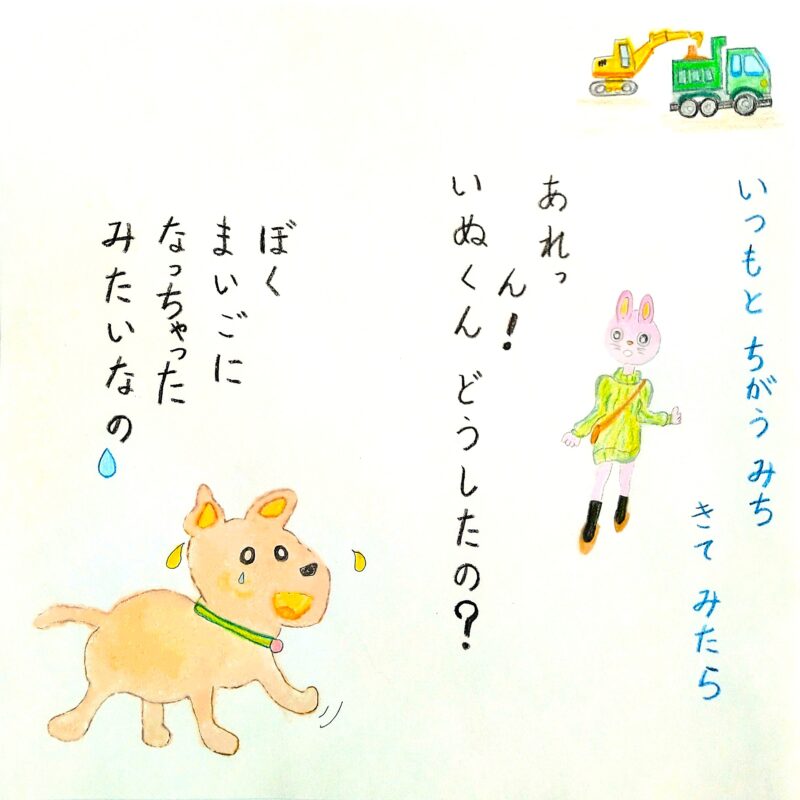 いつもと ちがう みち
きて みたら
あれっ
ん！
いぬくん どうしたの？
ぼく
まいごに
なっちゃった
みたいなの